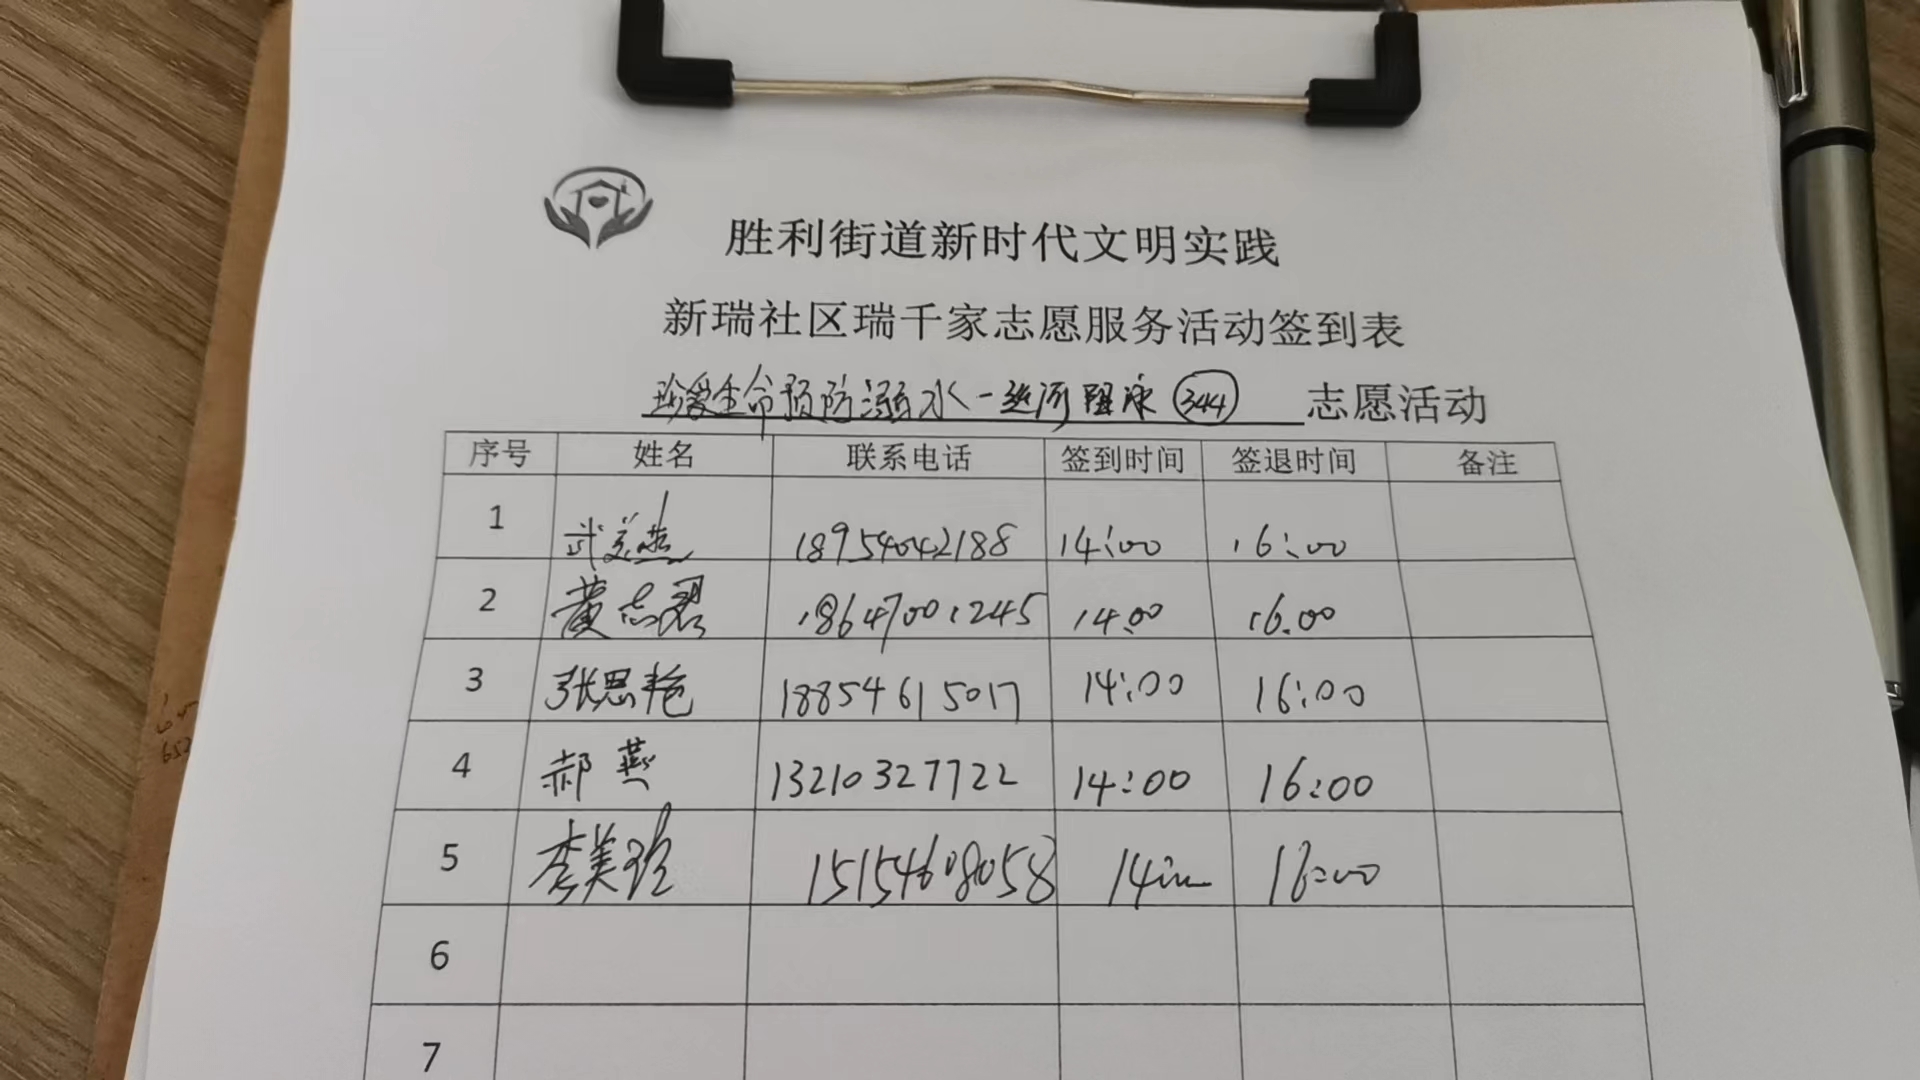 胜利街道新时代文明实践
新瑞社区瑞千家志愿服务活动签到表
珍爱生命预防溺水一巡河 344 志愿活动
序号 姓名 联系电话 签到时间 签退时间 备注
1 武美燕 18954042188 14:00 16:00
2 黄志君 18647001245 14:00 16:00
3 张思艳 18854615017 14:00 16:00
4 郝燕 13210327722 14:00 16:00
5 李美玲 15154608058 14:00 16:00
6
7